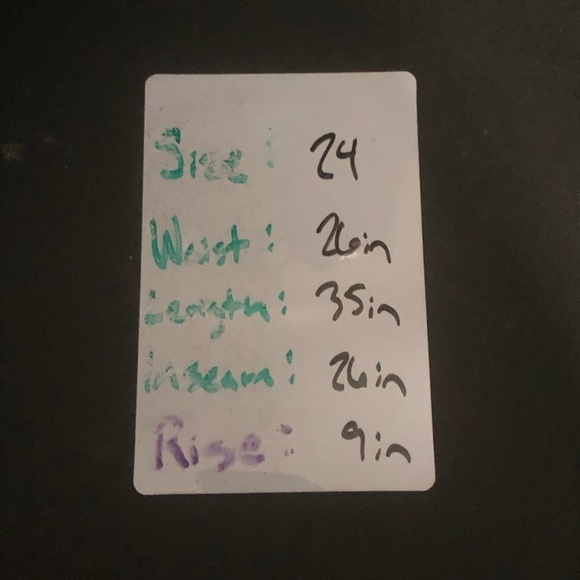 Size: 24
Waist: 26in
Length: 35in
Inseam: 26in
Rise: 9in